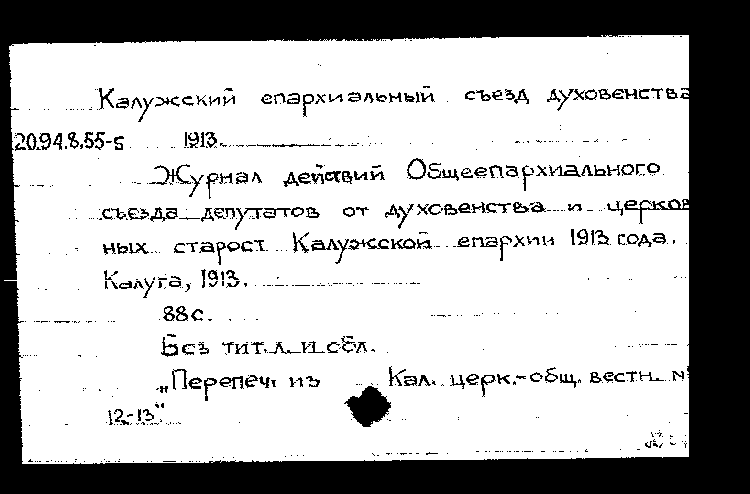 Калужский епархиальный съезд духовенства
20.94.8.55-5 1913.
Журнал действий Общеепархиального
съезда депутатов от духовенства и церков
ных старост Калужской епархии 1913 года.
Калуга, 1913.
88 с.
Безъ тит. л. и обл.
„Перепеч. изъ Кал. церк.-общ. вестн. №
12-13".